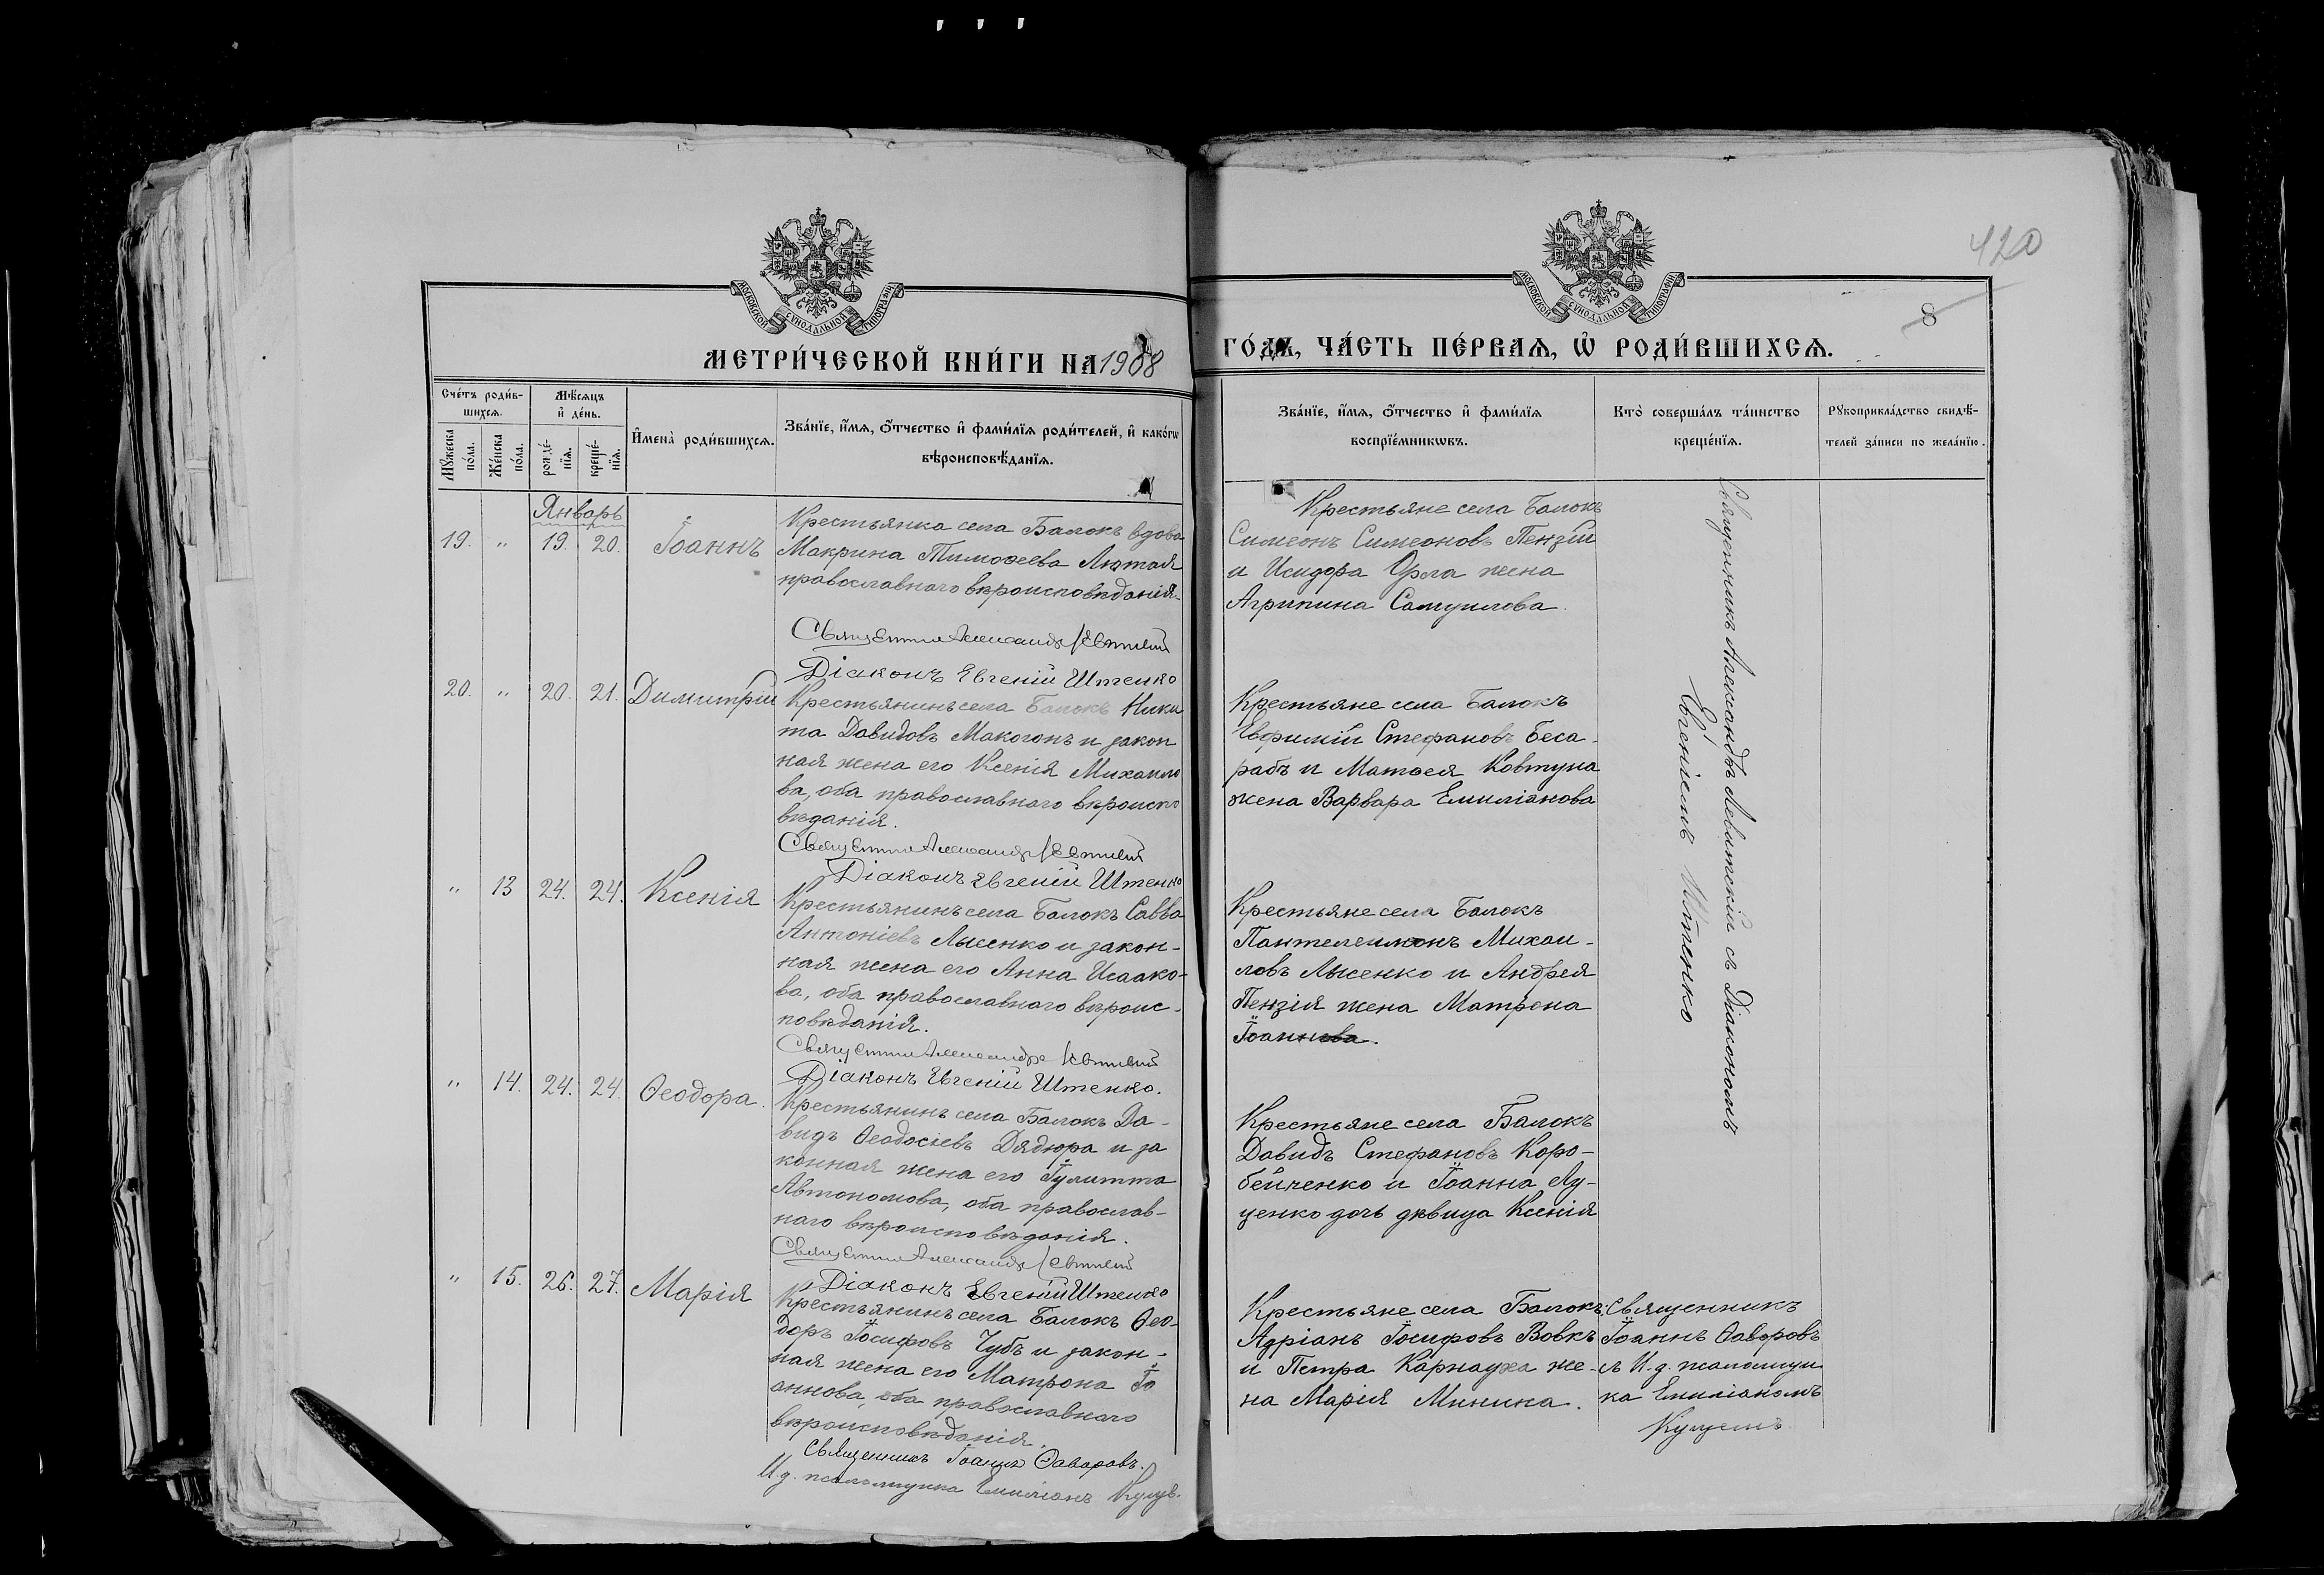 420
8
МОСКОВСКОЙ СѴНОДАЛЬНОЙ ТИПОГРАФІИ
МОСКОВСКОЙ СѴНОДАЛЬНОЙ ТИПОГРАФІИ
МЕТРИ́ЧЕСКОЙ КНИ́ГИ НА 1908
ГО́ДЪ, ЧА́СТЬ ПЕ́РВАѦ, Ѡ҆ РОДИ́ВШИХСѦ.
Сче́тъ роди́в-
шихсѧ.
Мꙋ́жеска по́ла.
Же́нска по́ла.
Мѣ́сѧцъ
и҆ де́нь.
рожде́-
нїѧ.
креще́-
нїѧ.
И҆мена̀ роди́вшихсѧ.
Зва́нїе, и҆́мѧ, ѻ҆́тчество и҆ фами́лїѧ роди́телей, и҆ како́гѡ
вѣроисповѣ́данїѧ.
Зва́нїе, и҆́мѧ, ѻ҆́тчество и҆ фами́лїѧ
воспрїе́мникѡвъ.
Кто̀ соверша́лъ та́инство
креще́нїѧ.
Рꙋкоприкла́дство свидѣ́-
телей за́писи по жела́нїю.
Январь
19. " 19. 20. Іоаннъ
Крестьянка села Балокъ вдова
Макрина Тимоѳеева Лютая
православнаго вѣроисповѣданія.
Діаконъ Евгеній Штенко
Крестьяне села Балокъ
Симеонъ Симеоновъ Пензій
и Исидора Орла жена
Агрипина Самуилова.
Священникъ Александръ Левитскій съ Діакономъ
Евгеніемъ Штенко
20. " 20. 21. Димитрій
Крестьянинъ села Балокъ Ники
та Давидовъ Макогонъ и закон
ная жена его Ксенія Михаило
ва, оба православнаго вѣроиспо
вѣданія.
Діаконъ Евгеній Штенко
Крестьяне села Балокъ
Евфимій Стефановъ Беса-
рабъ и Матѳея Ковтуна
жена Варвара Емиліанова
" 13 24. 24. Ксенія
Крестьянинъ села Балокъ Савва
Антоніевъ Лысенко и закон-
ная жена его Анна Исаако-
ва, оба православнаго вѣроис-
повѣданія.
Діаконъ Евгеній Штенко.
Крестьяне села Балокъ
Пантелеимонъ Михаи-
ловъ Лысенко и Андрея
Пензія жена Матрона
Іоаннова.
" 14. 24. 24. Ѳеодора.
Крестьянинъ села Балокъ Да-
видъ Ѳеодосіевъ Дядюра и за
конная жена его Іулитта
Автономова, оба православ-
наго вѣроисповѣданія.
Діаконъ Евгеній Штенко
Крестьяне села Балокъ
Давидъ Стефановъ Коро-
бейченко и Іоанна Лу-
ценко дочь дѣвица Ксенія
" 15. 26. 27. Марія
Крестьянинъ села Балокъ Ѳео-
доръ Іосифовъ Чубъ и закон-
ная жена его Матрона Іо
аннова, оба православнаго
вѣроисповѣданія.
Священникъ Іоаннъ Ѳаворовъ.
И.д. псаломщика Емиліанъ
Крестьяне села Балокъ
Адріанъ Іосифовъ Вовкъ
и Петра Карнауха же-
на Марія Минина.
Священникъ
Іоаннъ Ѳаворовъ
съ И.д. псаломщи
ка Емиліаномъ